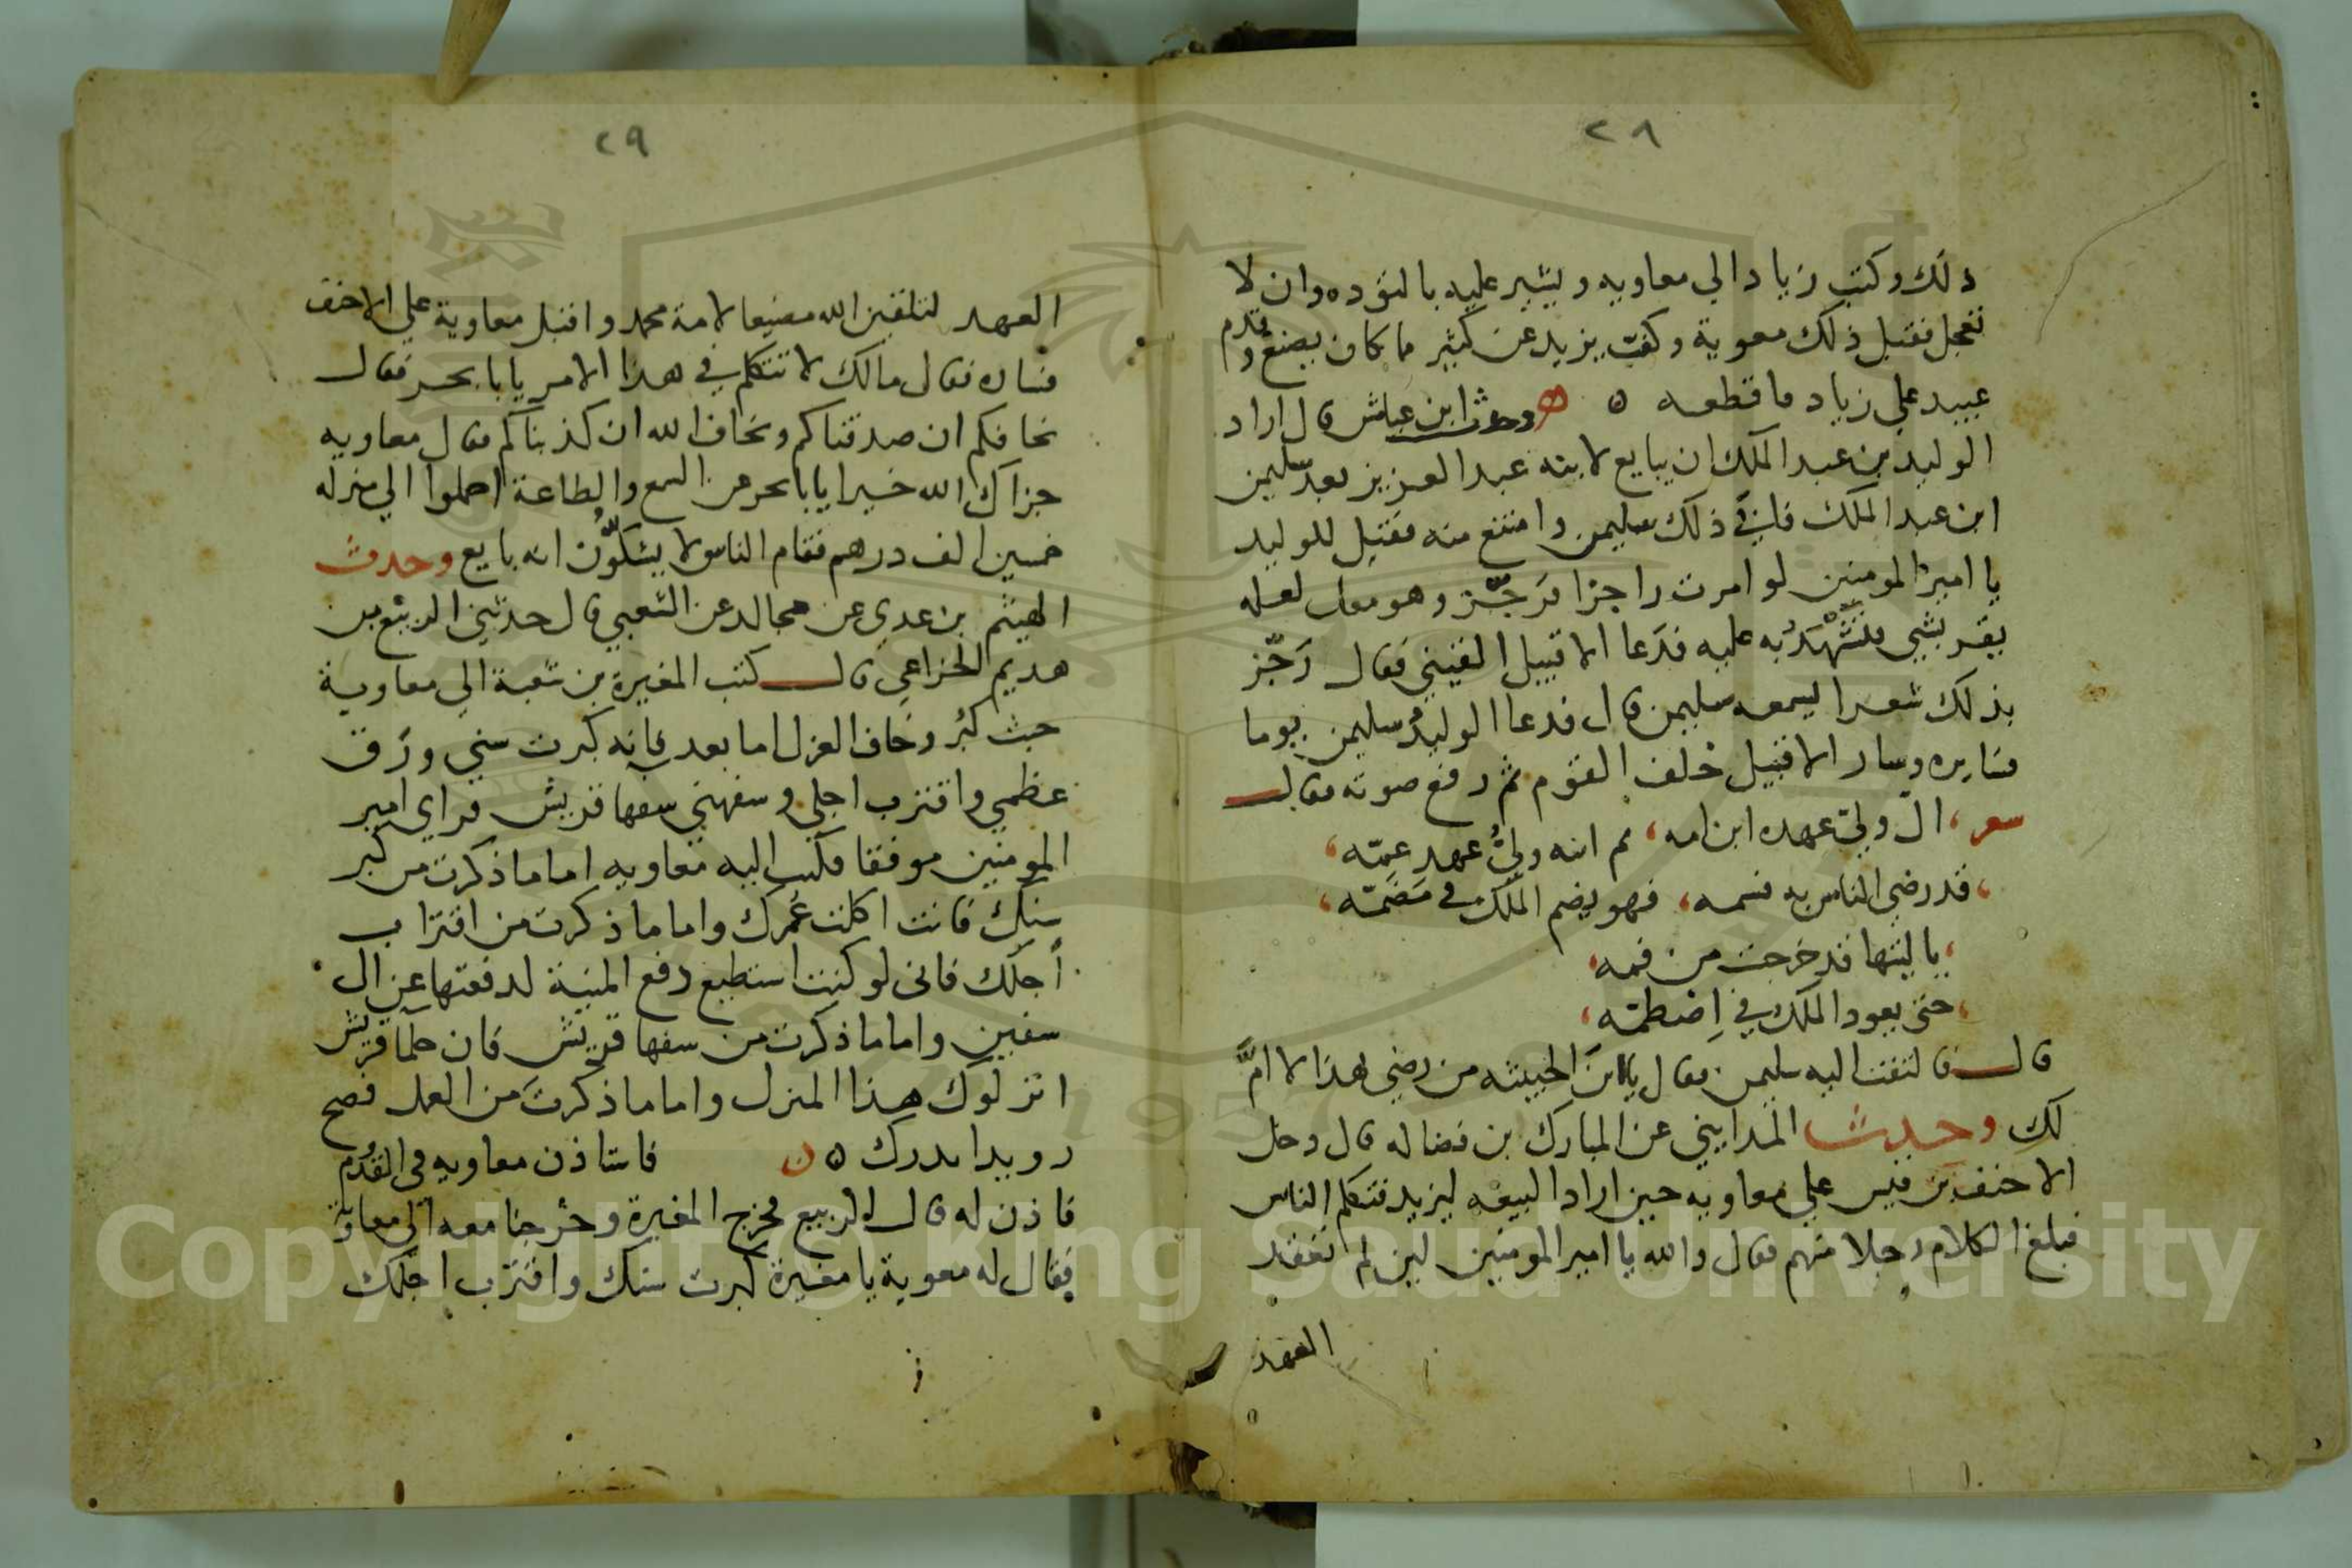 ٢٨
ذلك وكتب زيادا الي معاويه ويشير عليه بالتوده وان لا
تعجل فقبل ذلك معوية وكفّ يزيد عن كثير ما كان يصنع وقدم
عبيد علي زياد ما قطعه ه وحدث ابن عياش قال اراد
الوليد بن عبد الملك ان يبايع لابنه عبد العزيز بعد سليمن
ابن عبد الملك فابي ذلك سليمن وامتنع منه فقيل للوليد
يا امير المومنين لو امرت راجزا فرجّز وهو معك لعله
يقر بشي فتشهد به عليه فدعا الاقيبل القيني فقال رجّز
بذلك شعرا ليسمعه سليمن قال فدعا الوليد سليمن يوما
فسايره وسار الاقيبل خلف القوم ثم رفع صوته فقال
شعر، ان وليّ عهده ابن امه، ثم ابنه وليّ عهد عمّه،
، قد رضي الناس به فسمه، فهو يضم الملك في مضمّه،
، يا ليتها قد خرجت من فمه،
، حتى يعود الملك في اضطمّه،
قال فالتفت اليه سليمن فقال يا ابن الخبيثه من رضي هذا لا امّ
لك وحدث المدايني عن المبارك بن فضاله قال دخل
الاحنف بن قيس علي معاويه حين اراد البيعه ليزيد فتكلم الناس
فبلغ الكلام رجلا منهم فقال والله يا امير المومنين لين لم تعقد
العهد
٢٩
العهد لتلقين الله مضيعا لامة محمد واقبل معاوية علي الاحنف
فساره فقال مالك لا تتكلم في هذا الامر يابا بحر فقال
نخافكم ان صدقناكم ونخاف الله ان كذبناكم فقال معاويه
جزاك الله خيرا يابا بحر عن السمع والطاعة احملوا الي منزله
خمسين الف درهم فقام الناس لا يشكّون انه بايع وحدث
الهيثم بن عدي عن مجالد عن الشعبي قال حدثني الربيع بن
هديم الخزاعي قال كتب المغيرة بن شعبة الي معاوية
حيث كبُر وخاف العزل اما بعد فانه كبرت سني ورَق
عظمي واقترب اجلي وسفهني سفها قريش فراي امير
المومنين موفقا فكتب اليه معاويه اما ما ذكرت من كبر
سنك فانت اكلت عُمرك واما ما ذكرت من اقتراب
أجلك فاني لو كنت استطيع دفع المنية لدفعتها عن ال
سفين واما ما ذكرت من سفها قريش فان حلما قريش
انزلوك هذا المنزل واما ما ذكرت من العمل فصح
رويدا يدرك ه ن فاستاذن معاويه في القدوم
فاذن له قال الربيع فخرج المغيرة وخرجنا معه الي معاوية
فقال له معوية يا مغيرة كبرت سنك واقترب اجلك
Copyright © King Saud University
1957